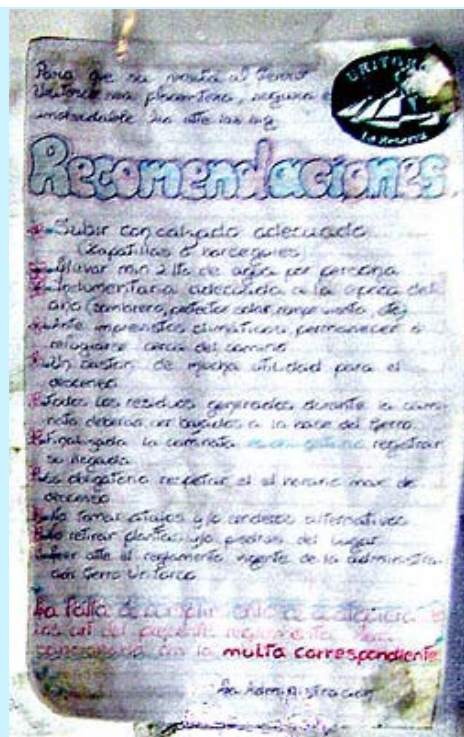 Para que su visita al Cerro
Uritorco sea placentera, segura e
inolvidable lea atte las sig.
URITORCO
La Reserva
Recomendaciones
Subir con calzado adecuado
(Zapatillas o borceguies)
Llevar min 2 lts de agua por persona
Indumentaria adecuada a la época del
año (sombrero, protector solar, rompe viento, etc)
Ante imprevistos climáticos, permanecer o
refugiarse cerca del camino
Un baston de mucha utilidad para el
descenso
Todos los residuos generados durante la cami
nata deberan ser bajados a la base del Cerro
Finalizada la caminata es obligatorio registrar
su llegada
Es obligatorio respetar el horario max de
descenso
No tomar atajos y/o senderos alternativos
No retirar plantas y/o piedras del lugar
Leer atte el reglamento vigente de la administra
cion Cerro Uritorco
La falta de cumplimiento de cualquiera
art del presente
sancionada con la multa correspondiente
La Administracion